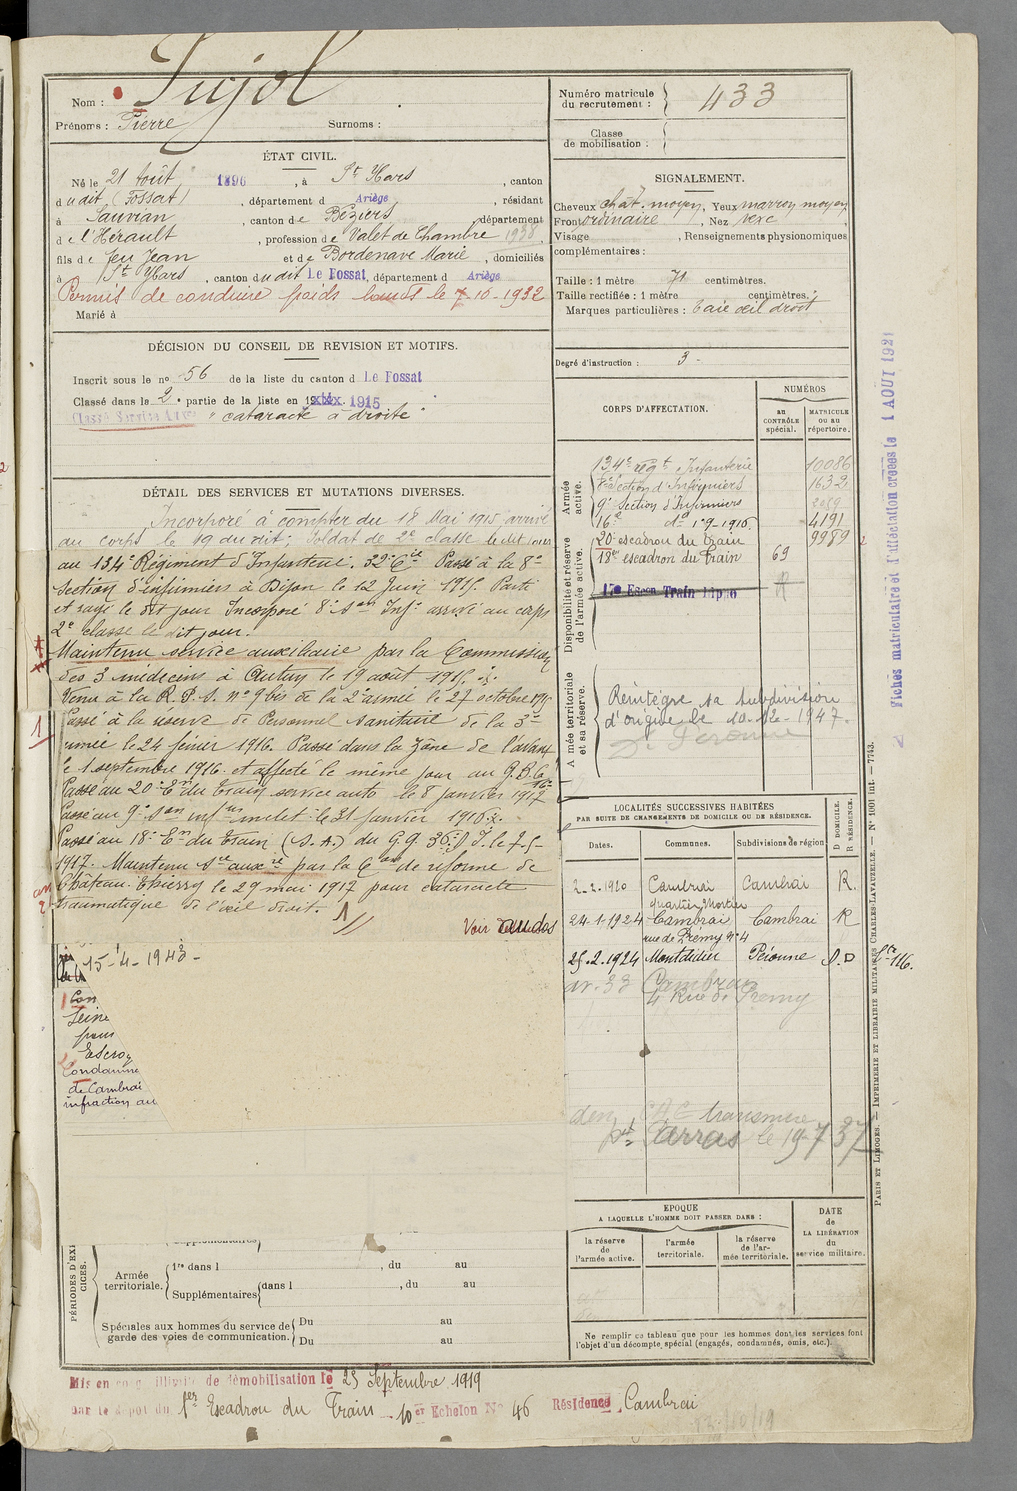 Nom : Pujol
Prénoms : Pierre Surnoms :
Numéro matricule du recrutement : 433
Classe de mobilisation :
ÉTAT CIVIL.
Né le 21 Août 1896, à St Ybars, canton
du dit (Fossat), département d Ariège, résidant
à Sauvian, canton de Béziers, département
de l'Hérault, profession de Valet de Chambre 1938
fils de feu Jean et de Bordenave Marie, domiciliés
à St Ybars, canton du dit Le Fossat, département d Ariège
Permis de conduire poids lourds le 7-10-1932
Marié à
SIGNALEMENT.
Cheveux chât. moyen, Yeux marron moyen,
Front ordinaire, Nez vexe
Visage , Renseignements physionomiques
complémentaires :
Taille : 1 mètre 71 centimètres.
Taille rectifiée : 1 mètre centimètres.
Marques particulières : taie œil droit
Degré d'instruction : 3 -
DÉCISION DU CONSEIL DE REVISION ET MOTIFS.
Inscrit sous le no 56 de la liste du canton d Le Fossat
Classé dans la 2e partie de la liste en 1915
Classé Service Aux
"cataracte à droite"
DÉTAIL DES SERVICES ET MUTATIONS DIVERSES.
Incorporé à compter du 18 Mai 1915 arrivé
au corps le 19 du dit; soldat de 2e classe le dit jour
au 134e Régiment d'Infanterie. 32e Cie Passé à la 8e
Section d'infirmiers à Dijon le 12 Juin 1915. Parti
et rayé le dit jour Incorporé 8e Son Inf. arrivé au corps
2e classe le dit jour.
Maintenu service auxiliaire par la Commission
des 3 médecins à Autun le 19 août 1915.
Venu à la R.P.S. no 9 bis de la 2e armée le 27 octobre 1915
Passé à la réserve de Personnel sanitaire de la 3e
armée le 24 février 1916. Passé dans la zône de l'avant
le 1 septembre 1916 et affecté le même jour au G.B.C.
Passé au 20e Em du Train service auto le 8 janvier 1917
Passé au 9e Son infrs milit. le 31 janvier 1916
Passé au 18e Em du Train (S.A.) du
1917. Maintenu Sce auxre par la Con de réforme de
Château-Thierry le 29 mai 1917 pour cataracte
traumatique de l'œil droit.
Voir au dos
15-4-1943-
Con
Seine
pour
Escroq
Condamné
de Cambrai
infraction au
CORPS D'AFFECTATION.
NUMÉROS
au CONTRÔLE spécial.
MATRICULE ou au répertoire.
Armée active.
134e régt Infanterie 10086
8e Section d'Infirmiers 1632
9e Section d'Infirmiers
16e do 1-9-1916 4191
Disponibilité et réserve de l'armée active.
20e escadron du train 9989
18e escadron du Train 63
17e Escon Train
Armée territoriale et sa réserve.
Réintègre sa subdivision
d'origine le 10-12-1947.
De Péronne
LOCALITÉS SUCCESSIVES HABITÉES
PAR SUITE DE CHANGEMENTS DE DOMICILE OU DE RÉSIDENCE.
Dates. Communes. Subdivisions de région D DOMICILE. R RÉSIDENCE.
2-2-1920 Cambrai Cambrai R.
quartier Mortier
24-1-1924 Cambrai Cambrai R
rue de Prémy no 4
25.2.1924 Montdidier Péronne D
33 Cambrai
4 Rue de Prémy
transmise
Arras le 19 7 37
EPOQUE
A LAQUELLE L'HOMME DOIT PASSER DANS :
la réserve de l'armée active.
l'armée territoriale.
la réserve de l'armée territoriale.
DATE de LA LIBÉRATION du service militaire.
Ne remplir ce tableau que pour les hommes dont les services font
l'objet d'un décompte spécial (engagés, condamnés, omis, etc.).
PÉRIODES D'EXERCICES.
Supplémentaires
Armée territoriale.
1re dans l , du au
Supplémentaires dans l , du au
Spéciales aux hommes du service de garde des voies de communication.
Du au
Du au
Mis en congé illimité de démobilisation le 25 Septembre 1919
Par le dépôt du 1er Escadron du Train 10e Echelon No 46 Résidence Cambrai
12/10/19
Fiches matriculaire et d'affectation créées le 1 AOUT 1921
PARIS ET LIMOGES. — IMPRIMERIE ET LIBRAIRIE MILITAIRES CHARLES-LAVAUZELLE. — No 1001 int. — 7743.